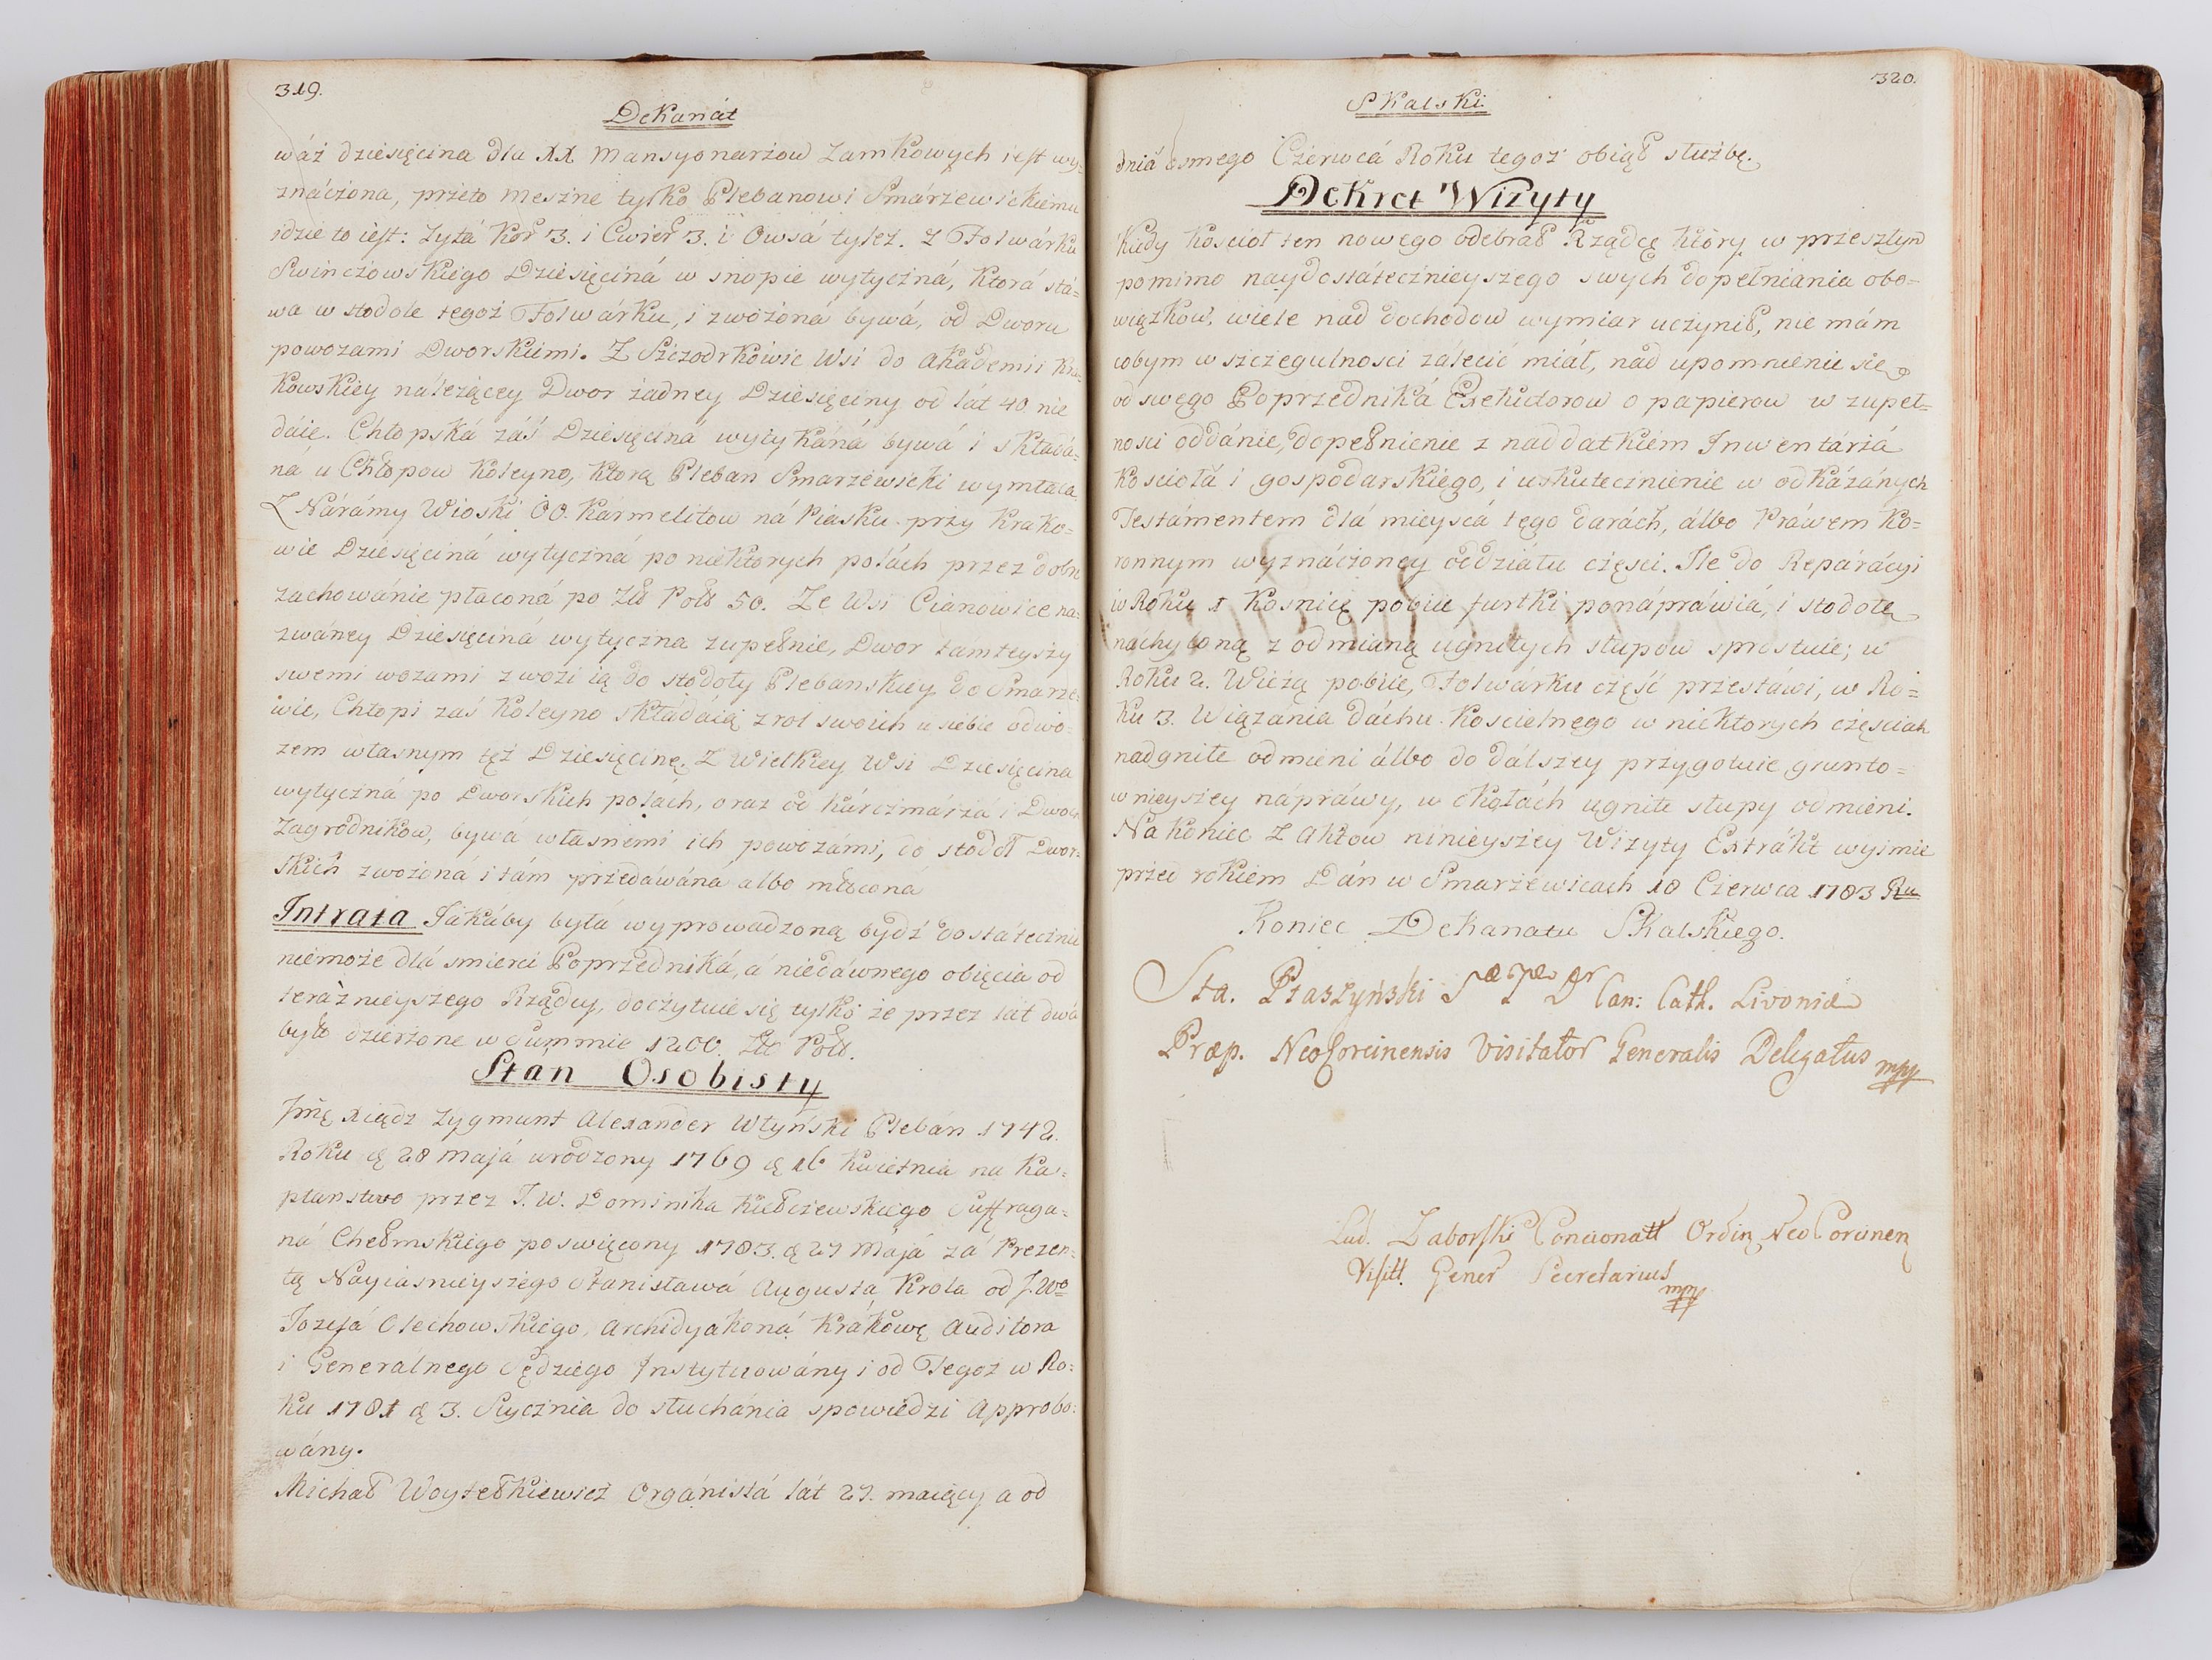 319.
Dekanát
waż dziesięcina dla XX. Mansyonarzow Zamkowych iest wy=
znáczona, przeto meszne tylko Plebanowi Smárzewickiemu
idzie to iest: Zytá Kor 3. i Cwier 3. i Owsá tyleż. Z Folwárku
Swinczowskiego Dziesięciná w snopie wytyczná, Ktorá stá=
wa w stodole tegoż Folwárku, i zwożoná bywá, od Dworu
powozami Dworskiemi. Z Szczodrkowic Wsi do Akademii Kra=
kowskiey náleżącey Dwor żadney Dziesięciny od lát 40 nie
dáie. Chłopská záś Dziesięciná wytykáná bywá i składá=
ná u Chłopow Koleyno, Ktorą Pleban Smarzewicki wymłaca.
Z Nárámy Wioski OO. Kármelitow ná Piasku przy Krako=
wie Dziesięciná wytyczná po niektorych polách przez dobre
zachowánie płaconá po Zł Pol 50. Ze Wsi Cianowice na=
zwáney Dziesięciná wytyczna zupełnie, Dwor támteyszy
swemi wozami zwozi ią do stodoły Plebanskiey do Smarze=
wic, Chłopi zaś Koleyno składaią z rol swoich u siebie odwo=
zem własnym tęż Dziesięcinę. Z Wielkiey Wsi Dziesięcina
wytyczná po Dworskich polach, oraz od kárczmárzá i Dwoch
Zagrodnikow, bywá własnemi ich powozámi, do stodoł Dwor=
skich zwożoná i tám przedáwána albo młoconá
Intrata Jákáby była wyprowadzoną bydź dostátecznie
niemoże dlá smierci Poprzedniká, á niedáwnego obięcia od
teráznieyszego Rządcy, doczytuie się tylko że przez lat dwá
było dzierżone w Summie 1200. Zł Pol.
Stan Osobisty
Jmę Xiądz Zygmunt Alexander Wtyński Plebán 1742.
Roku d 28 Majá urodzony 1769 d 16 Kwietnia na Ka=
płanstwo przez J. W. Dominika Kiełczewskiego Suffraga=
ná Chełmskiego poswięcony 1783. d 27 Májá zá Prezen=
tą Nayiasnieyszego Stanisława Augusta Krola od J. Wo
Jozefá Olechowskiego, Archidyakoná Krákowę Auditora
i Generálnego Sędziego Instytuowány i od Tegoż w Ro=
ku 1781 d 3. Stycznia do słuchánia spowiedzi Approbo=
wány.
Michał Woytełkiewicz Orgánistá lát 27. maiący a od
320.
Skalski.
dniá osmego Czerwcá Roku tegoż obiął służbę.
Dekret Wizyty
Kiedy Kosciol ten nowego odebrał Rządcę Ktory w przeszłyn
pomimo naydostáteczniey szego swych dopełniania obo=
wiązkow, wiele nad dochodow wymiar uczynił, nie mám
cobym w szczegulnosci zálecić miáł, nád upomnienie się
od swego Poprzedniká Exekutorow o papierow w zupeł=
nosci oddánie, dopełnienie z naddatkiem Inwentárzá
Koscioła i gospodarskiego, i uskutecznienie w odkázánych
Testámentem dlá mieyscá tego darách, álbo Práwem Ko=
ronnym wyznáczoney oddziału części. Ile do Reparácyi
w Roku 1 Kosnicę pobiie furtki ponápráwiá, i stodołę
nachyloną z odmianą ugniłych słupow sprostuie; w
Roku 2. Wieżą pobiie, Folwárku część przestáwi, w Ro=
ku 3. Wiązánia dáchu Koscielnego w niektorych częściach
nadgniłe odmieni álbo do dálszey przygotuie grunto=
wnieyszey nápráwy, w okołách ugniłe słupy odmieni.
Nakoniec z Aktow ninieyszey Wizyty Extrákt wyimie
przed rokiem Dán w Smarzewicach 10 Czerwca 1783 Ru
Koniec Dekanatu Skalskiego.
Sta. Ptaszyński Can: Cath. Livoniæ
Præp. NeoCorcinensis Visitator Generalis Delegatus mpp
Lud. Zaborski Concionatt Ordin NeoCorcinen
Visitt. Gener Secretarius
mpp